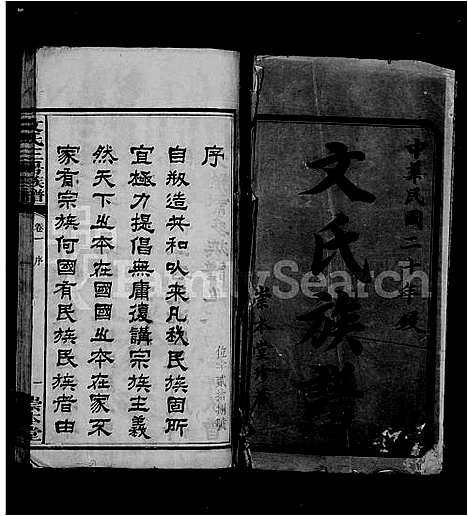 中華民國二十年歲
文氏族譜
崇本堂
序
自刱造共和㕥來凡我民族固所
宜極力提倡無庸復講宗族主義
然天下㞢本在國國㞢本在家不
家有宗族何國有民族民族者由
族譜
卷一
序
一
崇本堂
FamilySearch